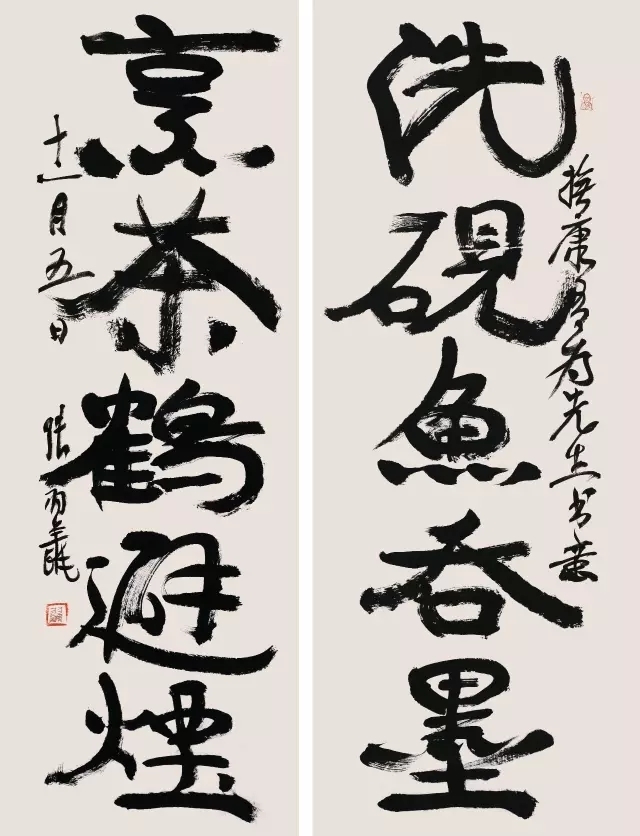 康有为先生书意
洗硯魚吞墨
烹茶鶴避煙
十一月五日
張羽